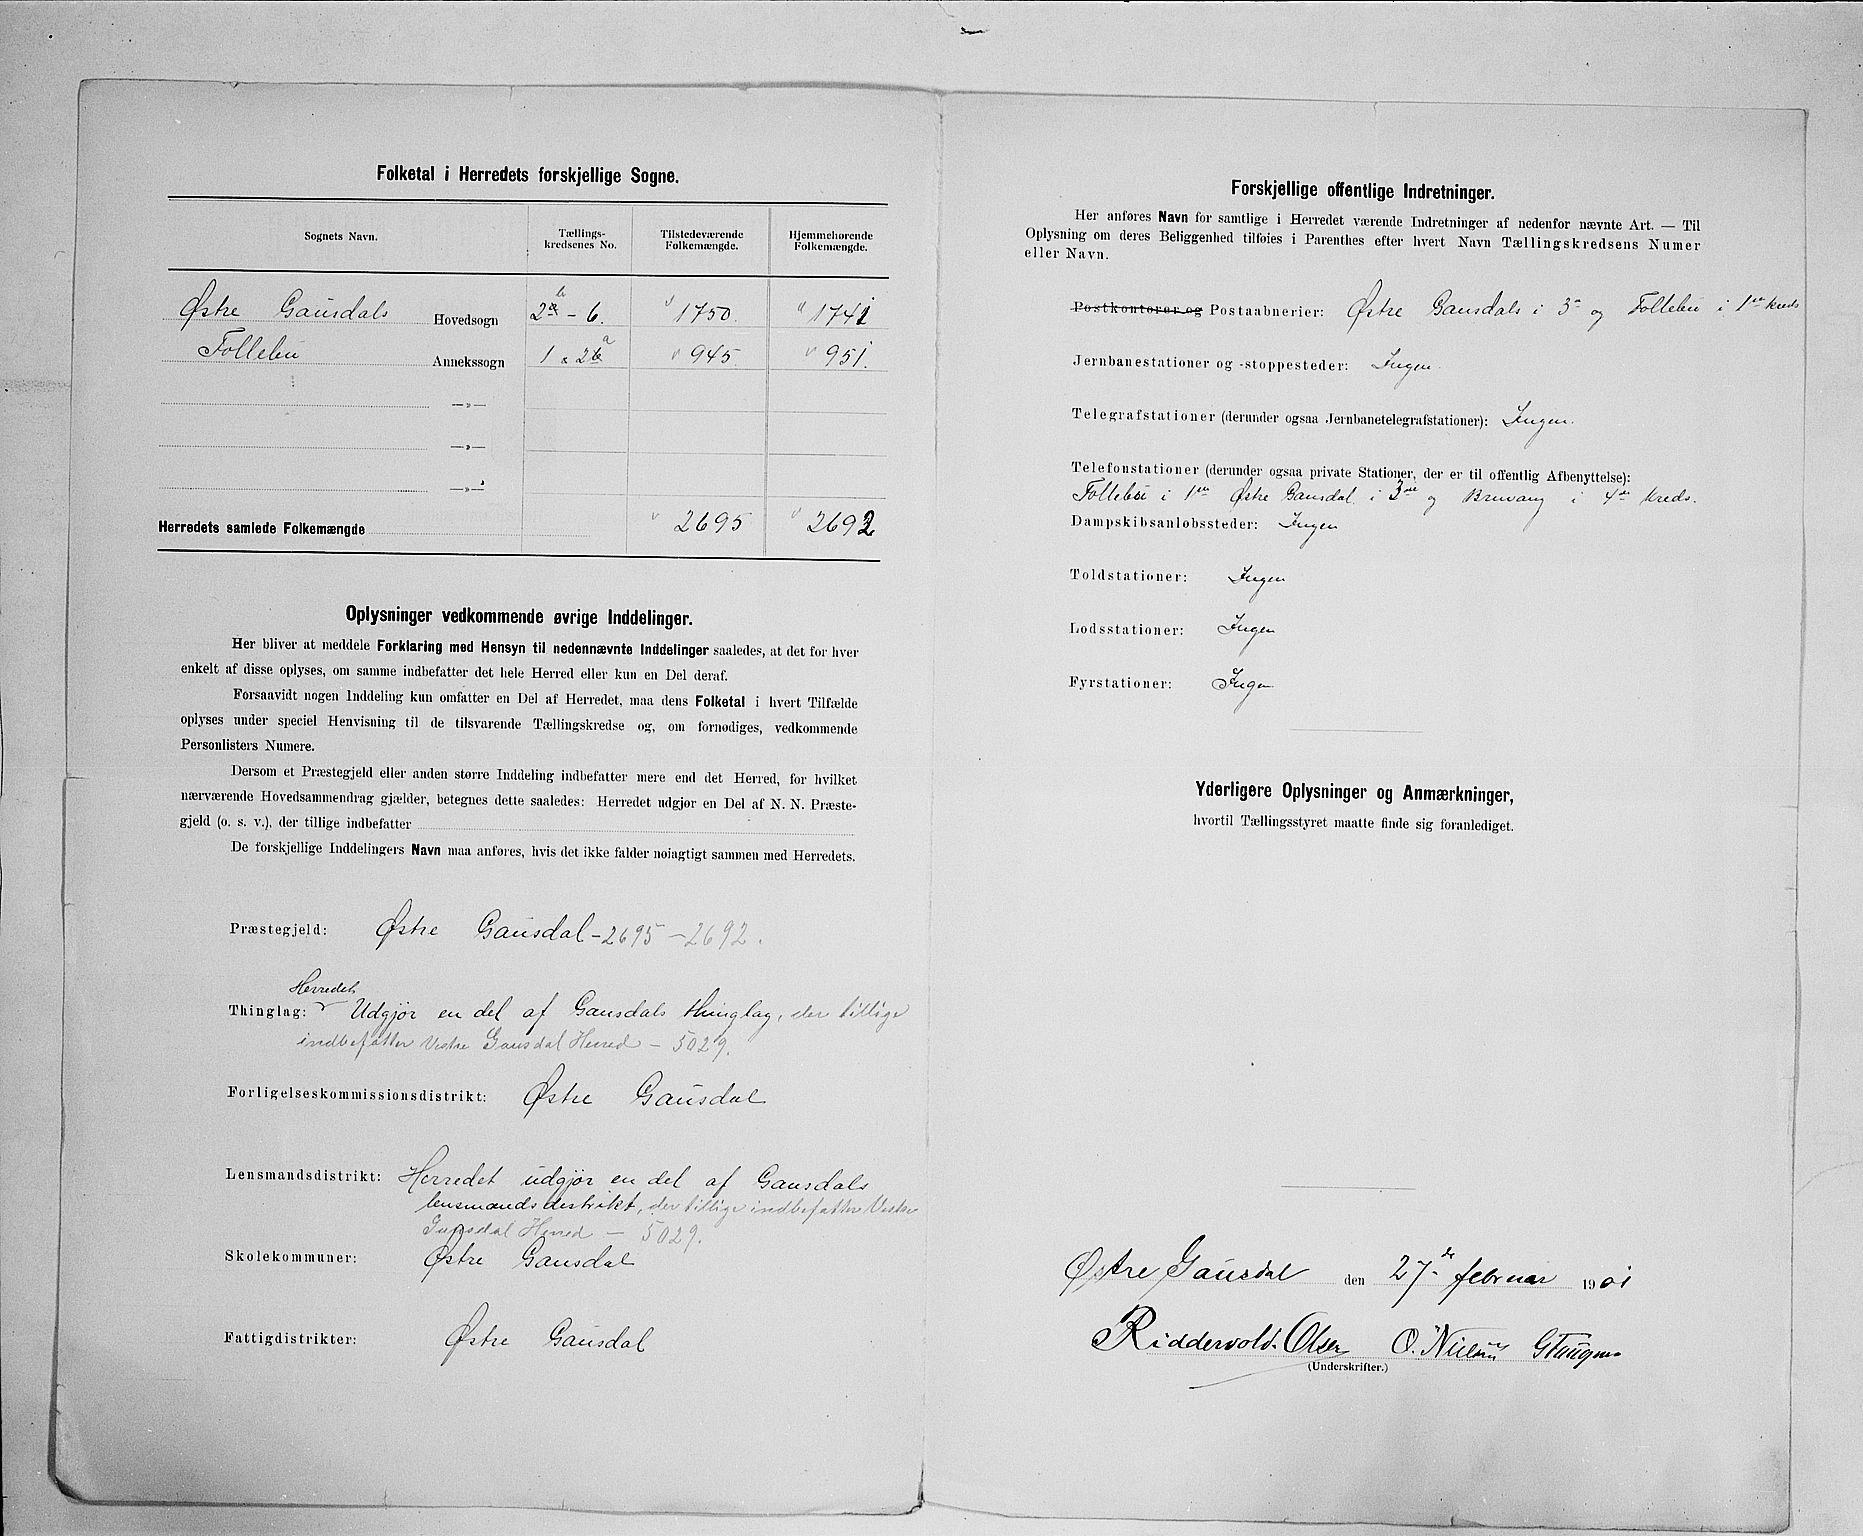 Folketal i Herredets forskjellige Sogne.
Sognets Navn. Tællings-kredsenes No. Tilstedeværende Folkemængde. Hjemmehørende Folkemængde.
Østre Gausdals Hovedsogn 2b - 6. 1750. 1741
Follebu Annekssogn 1 & 2a 945. 951.
—»—
—»—
—»—
Herredets samlede Folkemængde 2695 2692
Oplysninger vedkommende øvrige Inddelinger.
Her bliver at meddele Forklaring med Hensyn til nedennævnte Inddelinger saaledes, at det for hver
enkelt af disse oplyses, om samme indbefatter det hele Herred eller kun en Del deraf.
Forsaavidt nogen Inddeling kun omfatter en Del af Herredet, maa dens Folketal i hvert Tilfælde
oplyses under speciel Henvisning til de tilsvarende Tællingskredse og, om fornødiges, vedkommende
Personlisters Numere.
Dersom et Præstegjeld eller anden større Inddeling indbefatter mere end det Herred, for hvilket
nærværende Hovedsammendrag gjælder, betegnes dette saaledes: Herredet udgjør en Del af N. N. Præste-
gjeld (o. s. v.), der tillige indbefatter
De forskjellige Inddelingers Navn maa anføres, hvis det ikke falder nøiagtigt sammen med Herredets.
Præstegjeld: Østre Gausdal - 2695 - 2692.
Herredet
Thinglag: Udgjør en del af Gausdals thinglag, der tillige
indbefatter Vestre Gausdal Herred - 5029.
Forligelseskommissionsdistrikt: Østre Gausdal
Lensmandsdistrikt: Herredet udgjør en del af Gausdals
lensmandsdistrikt, der tillige indbefatter Vestre
Gausdal Herred - 5029.
Skolekommuner: Østre Gausdal
Fattigdistrikter: Østre Gausdal
Forskjellige offentlige Indretninger.
Her anføres Navn for samtlige i Herredet værende Indretninger af nedenfor nævnte Art. — Til
Oplysning om deres Beliggenhed tilføies i Parenthes efter hvert Navn Tællingskredsens Numer
eller Navn.
Postkontorer og Postaabnerier: Østre Gausdals i 3e og Follebu i 1ste kreds
Jernbanestationer og -stoppesteder: Ingen.
Telegrafstationer (derunder ogsaa Jernbanetelegrafstationer): Ingen.
Telefonstationer (derunder ogsaa private Stationer, der er til offentlig Afbenyttelse):
Follebu i 1ste Østre Gausdal i 3die og Bruvang i 4de Kreds.
Dampskibsanløbssteder: Ingen
Toldstationer: Ingen
Lodsstationer: Ingen
Fyrstationer: Ingen
Yderligere Oplysninger og Anmærkninger,
hvortil Tællingsstyret maatte finde sig foranlediget.
Østre Gausdal den 27de februar 1901
Riddervold Olsen O. Nielsen
(Underskrifter.)